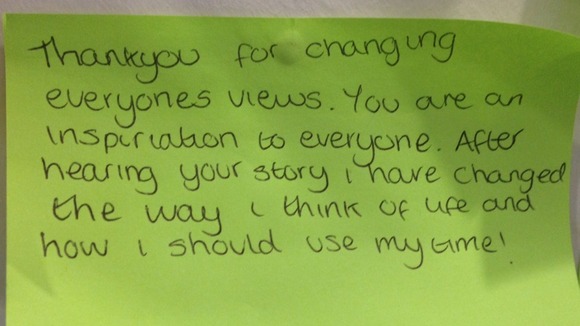 Thankyou for changing
everyones views. You are an
inspiriation to everyone. After
hearing your story i have changed
the way i think of life and
how i should use my time!